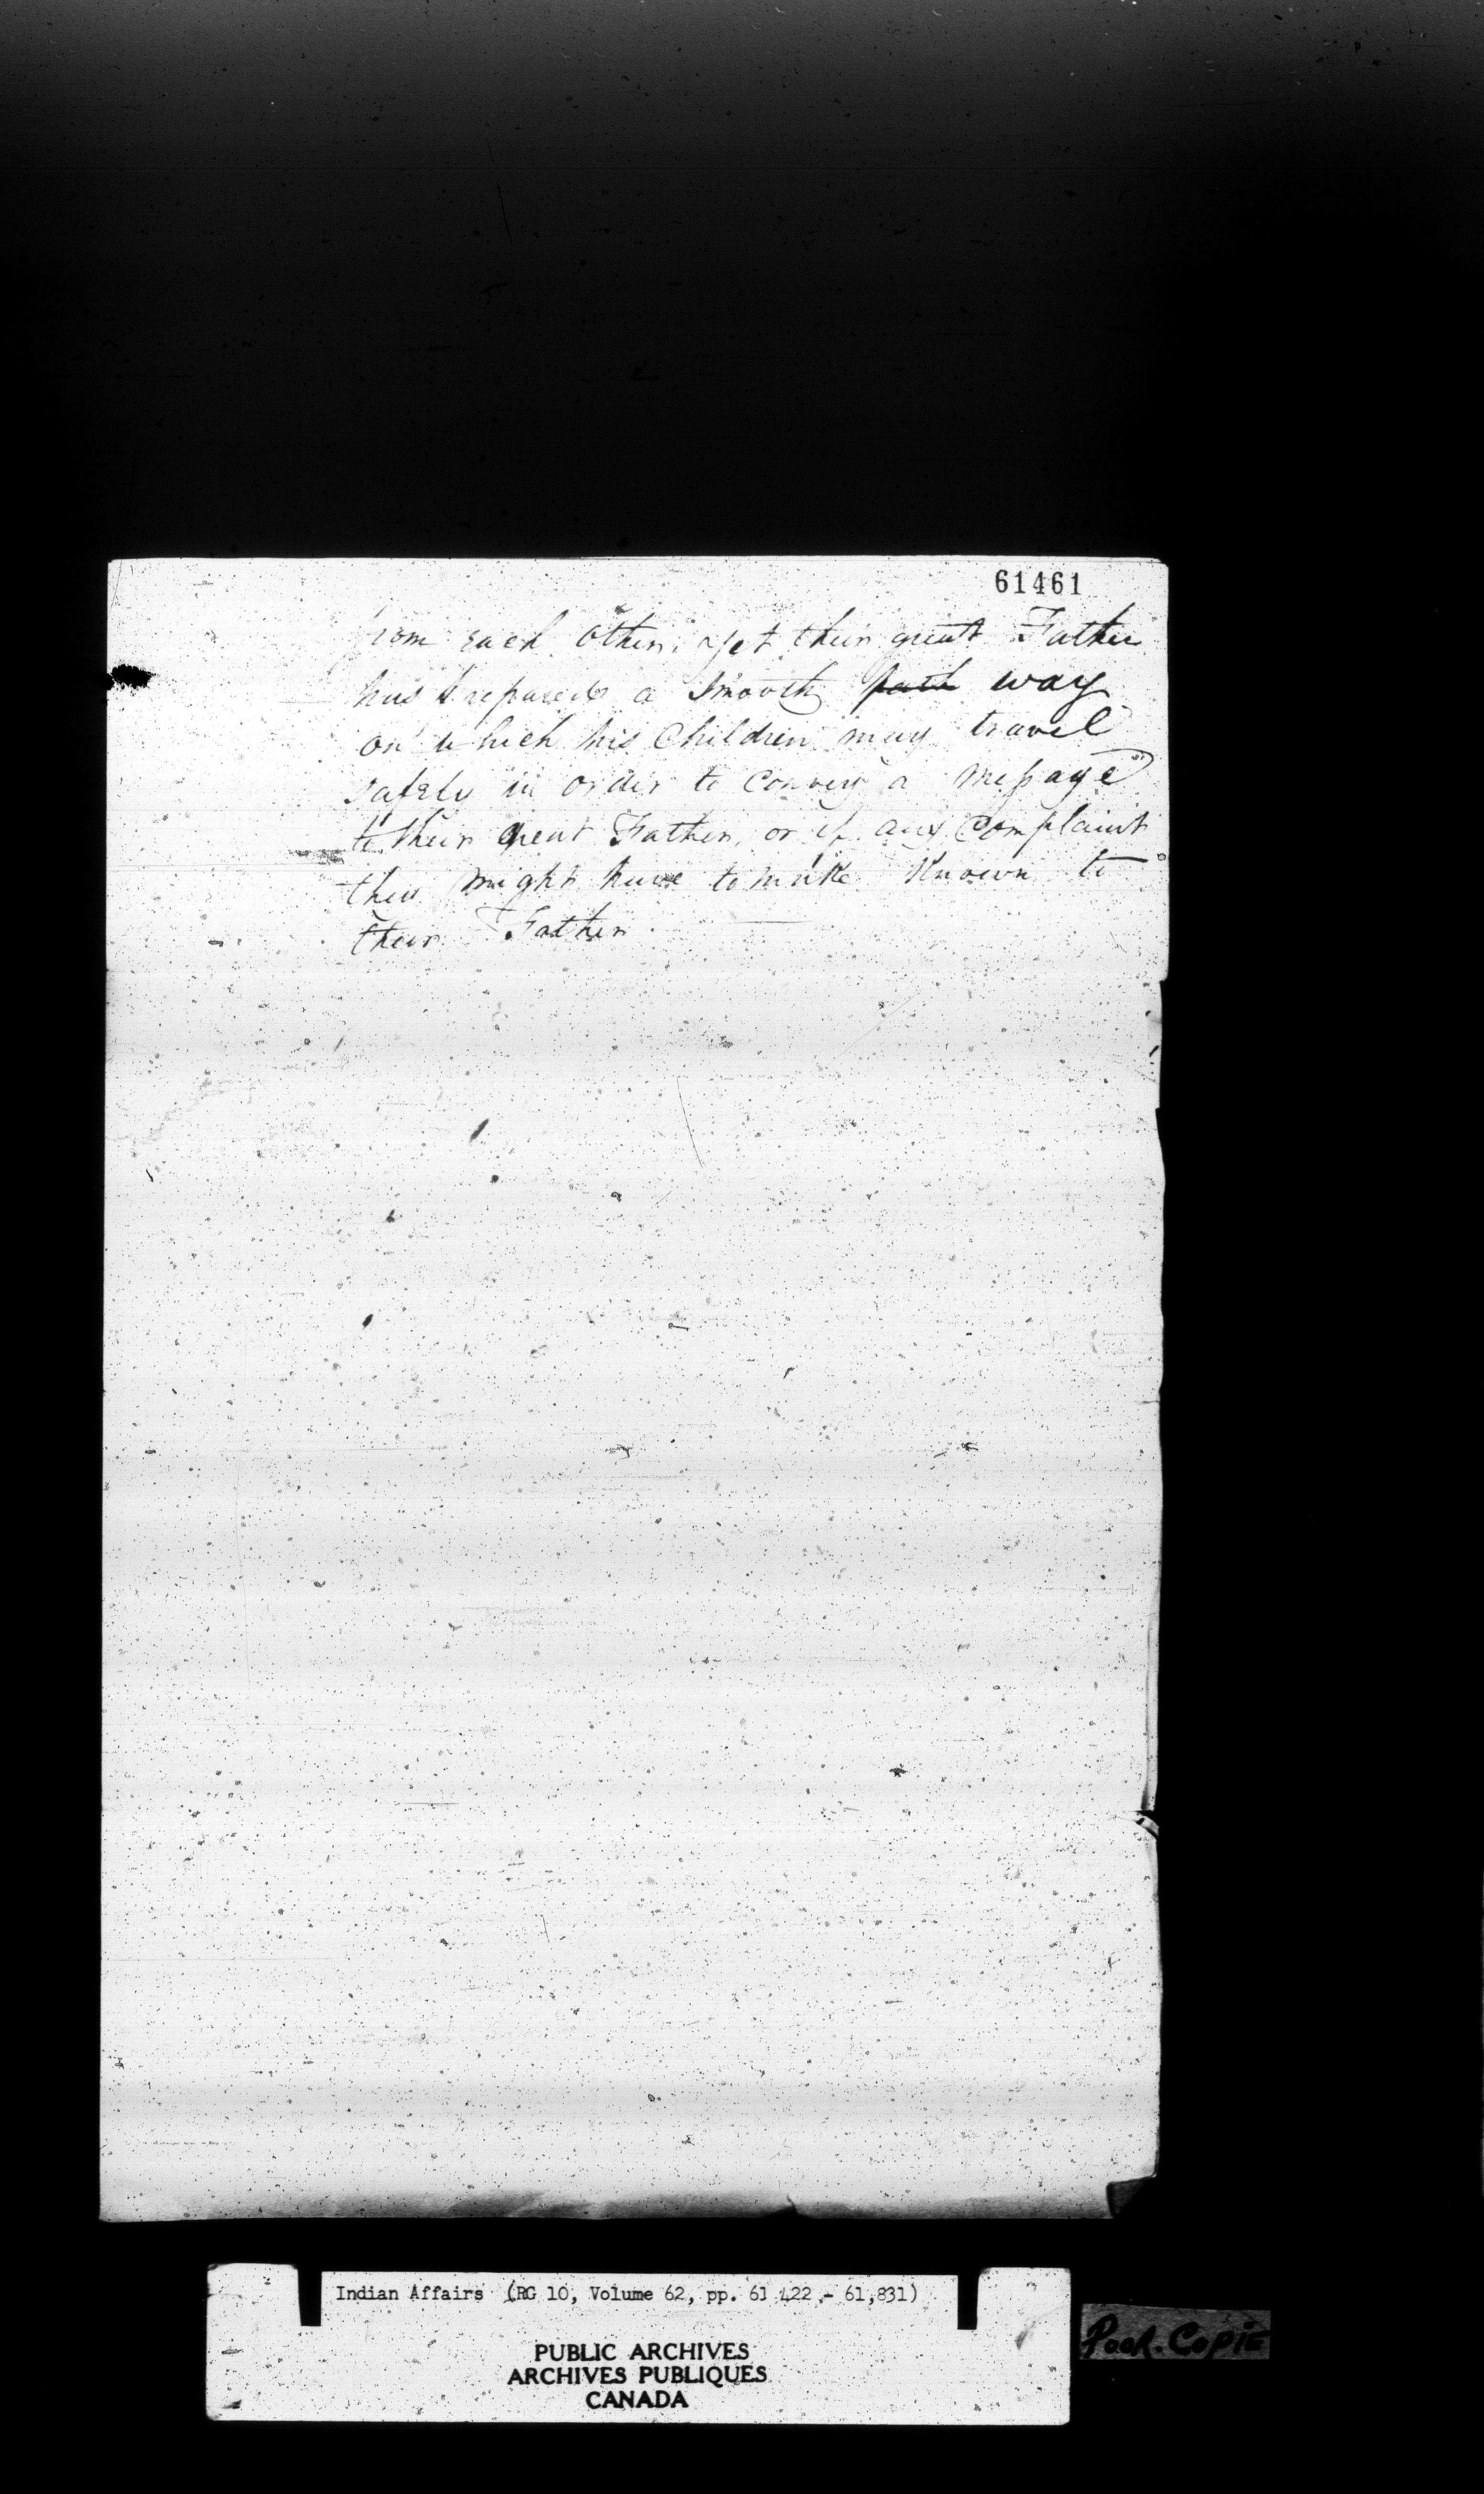 61461
from each other, yet their great Father
has prepared a smooth path way
on which his Children may travel
safely in order to Convey a Message
to their great Father, or if any Complaint
they might have to make Known to
their Father.
Indian Affairs (RG 10, Volume 62, pp. 61,422 - 61,831)
PUBLIC ARCHIVES
ARCHIVES PUBLIQUES
CANADA
Poor. Copie